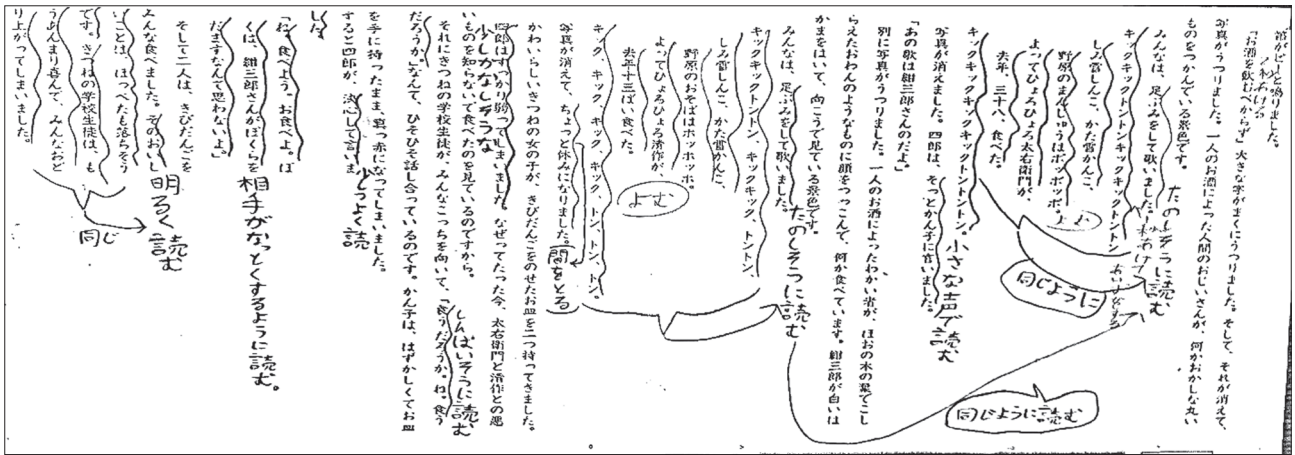 笛がピーと鳴りました。
「お酒を飲むべからず」大きな字がまくにうつりました。そして、それが消えて、
写真がうつりました。一人のお酒によった人間のおじいさんが、何かおかしな丸い
ものをつかんでいる景色です。
みんなは、足ぶみをして歌いました。
たのしそうに読む
キックキックトントンキックキックトントン
しみ雪しんこ、かた雪かんこ、
野原のまんじゅうはポッポッポ。
よってひょろひょろ太右衛門が、
去年、三十八、食べた。
キックキックキックキックトントントン。
同じように
写真が消えました。四郎は、そっとかん子に言いました。
小さな声で読む
「あの歌は紺三郎さんのだよ。」
別に写真がうつりました。一人のお酒によったわかい者が、ほおの木の葉でこし
らえたおわんのようなものに顔をつっこんで、何か食べています。紺三郎が白いは
かまをはいて、向こうで見ている景色です。
みんなは、足ぶみをして歌いました。
たのしそうに読む
同じように読む
キックキックトントン、キックキック、トントン、
しみ雪しんこ、かた雪かんこ、
野原のおそばはホッホッホ。
よってひょろひょろ清作が、
去年十三ばい食べた。
よむ
キック、キック、キック、キック、トン、トン、トン。
写真が消えて、ちょっと休みになりました。
間をとる
かわいらしいきつねの女の子が、きびだんごをのせたお皿を二つ持ってきました。
四郎はすっかり弱ってしまいました。なぜってたった今、太右衛門と清作との悪
少しかなしそうな
いものを知らないで食べたのを見ているのですから。
しんぱいそうに読む
それにきつねの学校生徒が、みんなこっちを向いて、「食うだろうか。ね。食う
だろうか。」なんて、ひそひそ話し合っているのです。かん子は、はずかしくてお皿
を手に持ったまま、真っ赤になってしまいました。
すると四郎が、決心して言いま
少しつよく読
した。
「ね、食べよう。お食べよ。ぼ
くは、紺三郎さんがぼくらを
だますなんて思わないよ。」
相手がなっとくするように読む。
そして二人は、きびだんごを
みんな食べました。そのおいし
いことは、ほっぺたも落ちそう
です。きつねの学校生徒は、も
うあんまり喜んで、みんなおど
り上がってしまいました。
明るく読む
同じ